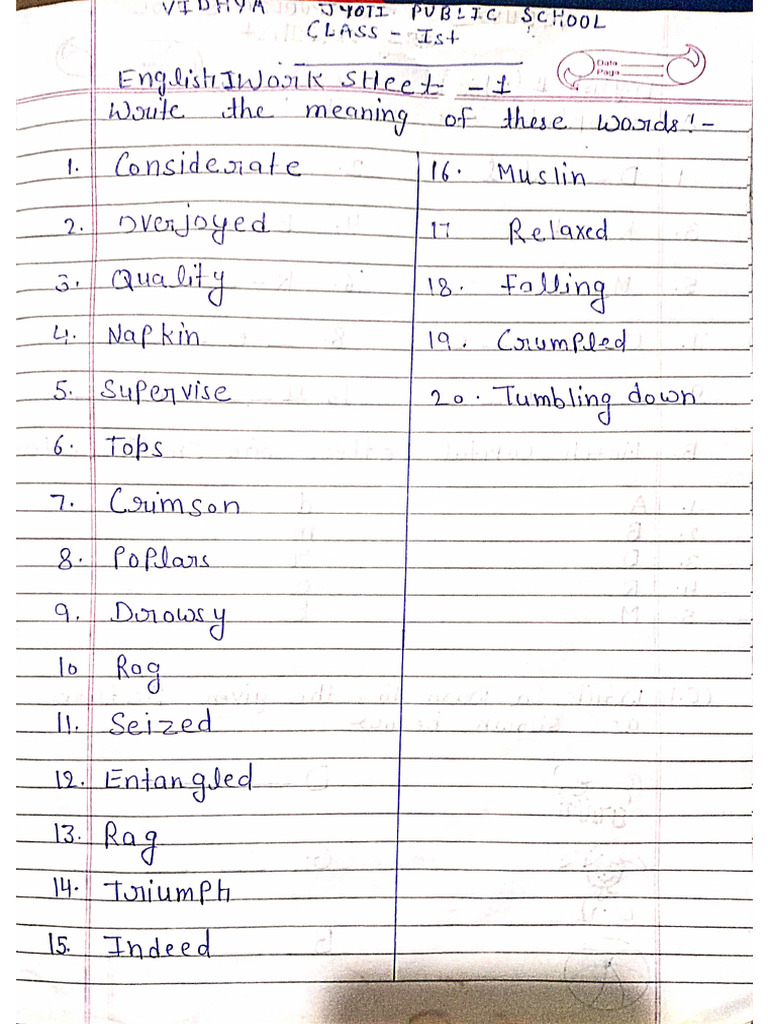 VIDHYA JYOTI PUBLIC SCHOOL
CLASS - Ist
Date
Page
English Work Sheet - 1
Write the meaning of these words! -
1. Considerate
2. Overjoyed
3. Quality
4. Napkin
5. Supervise
6. Tops
7. Crimson
8. Poplars
9. Drowsy
10 Rag
11. Seized
12. Entangled
13. Rag
14. Triumph
15. Indeed
16. Muslin
17 Relaxed
18. Falling
19. Crumpled
20. Tumbling down